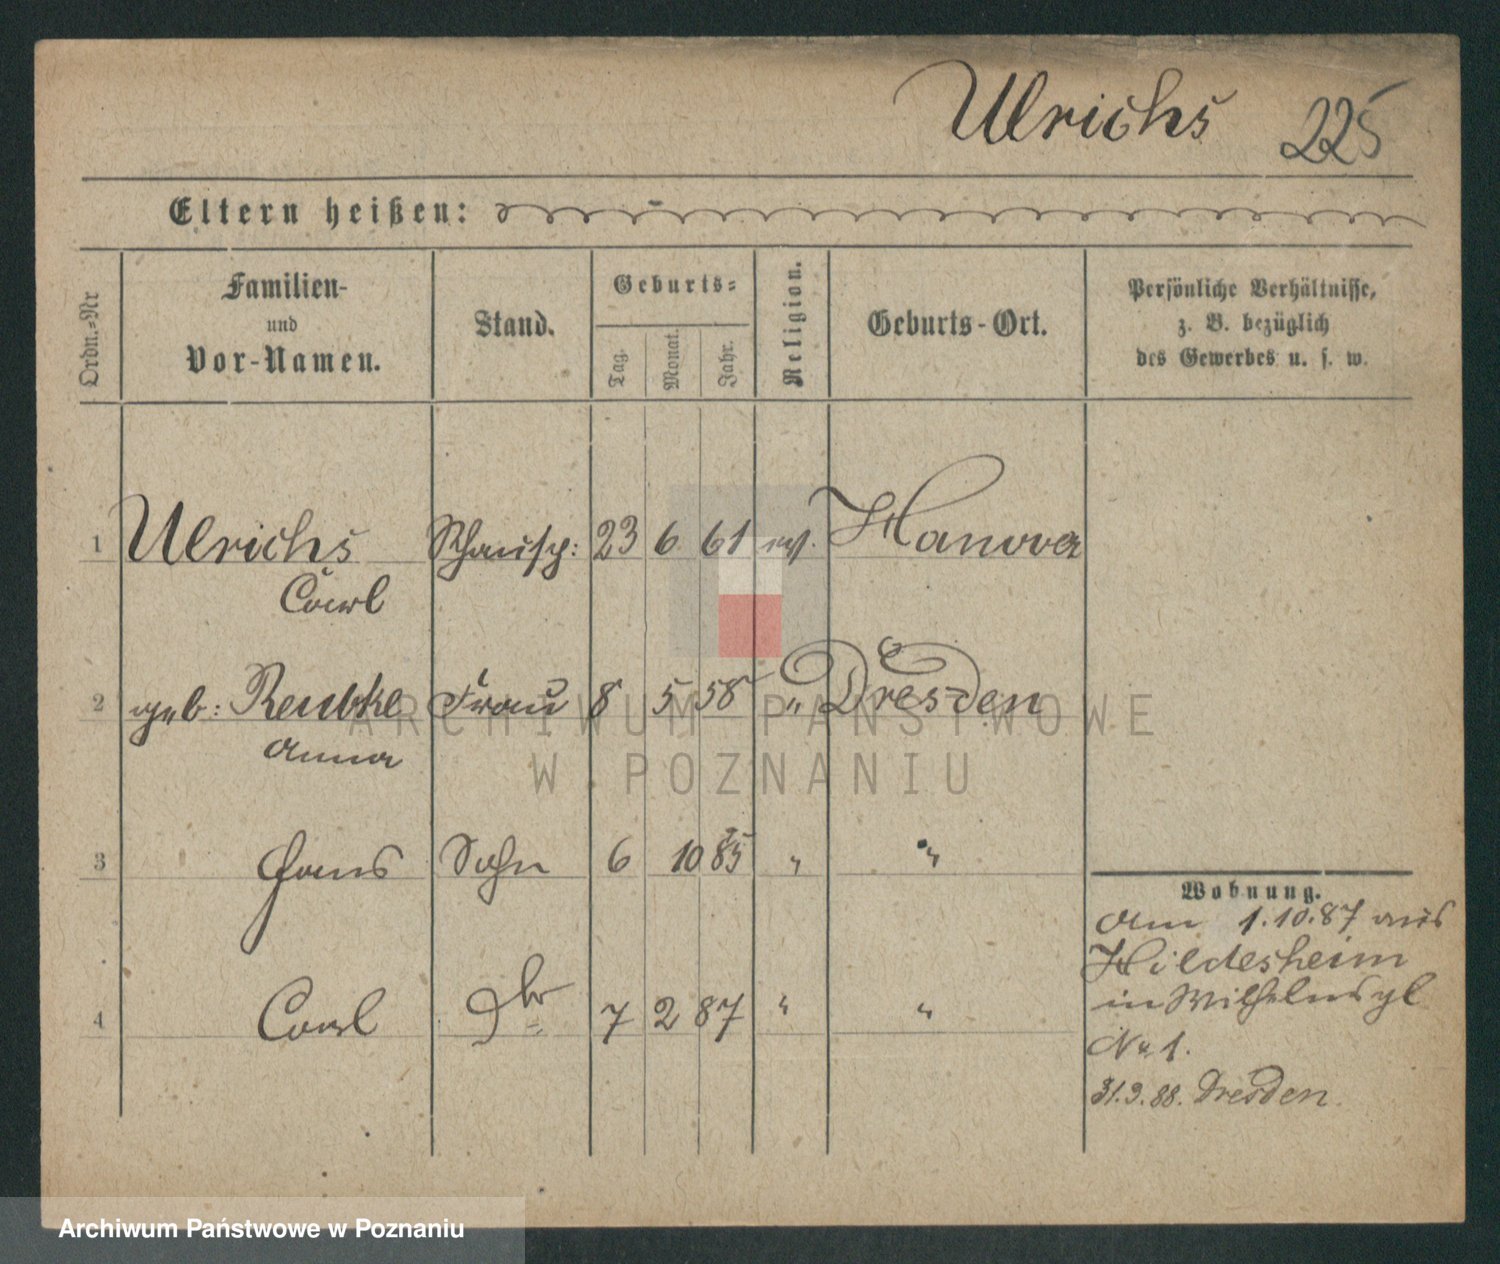 Ulrichs 225
Eltern heißen:
Ordn.-Nr
Familien-
und
Vor-Namen.
Stand.
Geburts-
Tag.
Monat.
Jahr.
Religion.
Geburts-Ort.
Persönliche Verhältnisse,
z. B. bezüglich
des Gewerbes u. s. w.
1 Ulrichs Schausp: 23 6 61 ev. Hanover
Carl
2 geb: Reubke Frau 8 5 58 " Dresden
Anna
3 Hans Sohn 6 10 85 " "
4 Carl Dto 7 2 87 " "
Wohnung.
Am 1.10.87 aus
Hildesheim
in Wilhelmspl
No 1.
31.3.88. Dresden.
ARCHIWUM PAŃSTWOWE
W POZNANIU
Archiwum Państwowe w Poznaniu